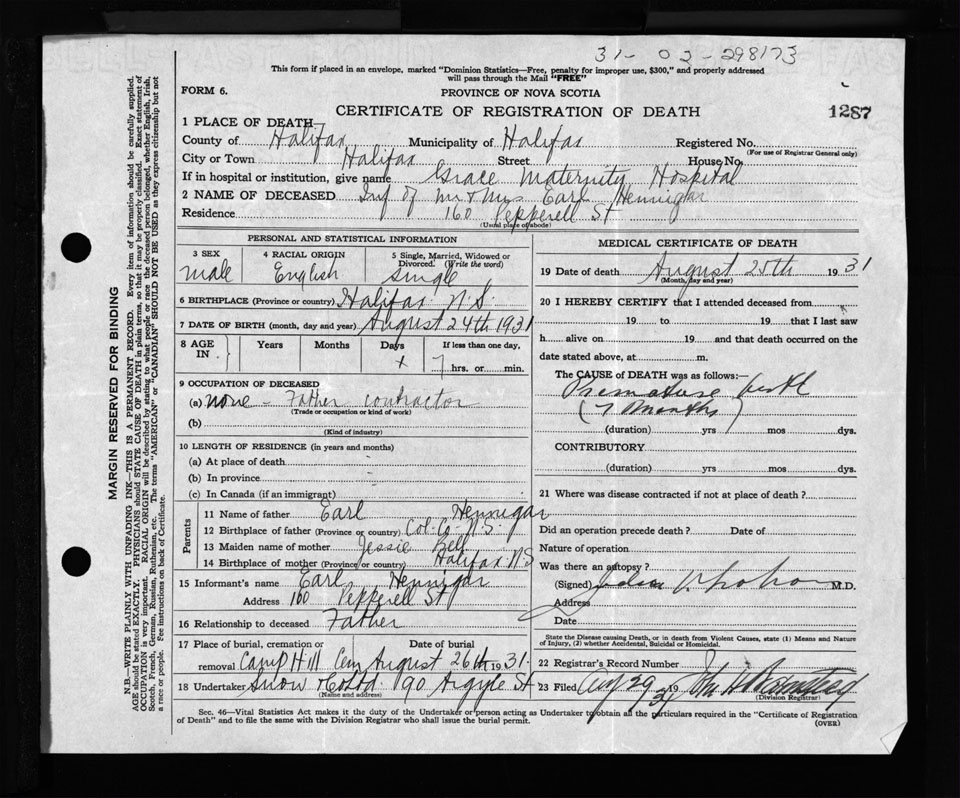 31-02-298173
This form if placed in an envelope, marked "Dominion Statistics—Free, penalty for improper use, $300," and properly addressed
will pass through the Mail "FREE"
FORM 6.
PROVINCE OF NOVA SCOTIA
CERTIFICATE OF REGISTRATION OF DEATH
1287
1 PLACE OF DEATH—
County of Halifax Municipality of Halifax Registered No.
(For use of Registrar General only)
City or Town Halifax Street House No.
If in hospital or institution, give name Grace Maternity Hospital
2 NAME OF DECEASED Inf of Mr & Mrs Earl Hennigar
Residence 160 Pepperell St
(Usual place of abode)
PERSONAL AND STATISTICAL INFORMATION
3 SEX
male
4 RACIAL ORIGIN
English
5 Single, Married, Widowed or
Divorced. (Write the word)
single
6 BIRTHPLACE (Province or country) Halifax N.S.
7 DATE OF BIRTH (month, day and year) August 24th 1931
8 AGE IN Years Months Days If less than one day,
x 7 hrs. or min.
9 OCCUPATION OF DECEASED
(a) none - Father contractor
(Trade or occupation or kind of work)
(b)
(Kind of industry)
10 LENGTH OF RESIDENCE (in years and months)
(a) At place of death
(b) In province
(c) In Canada (if an immigrant)
Parents
11 Name of father Earl Hennigar
12 Birthplace of father (Province or country) Col. Co. N.S.
13 Maiden name of mother Jessie Bell
14 Birthplace of mother (Province or country) Halifax N S
15 Informant's name Earl Hennigar
Address 160 Pepperell St
16 Relationship to deceased Father
17 Place of burial, cremation or Date of burial
removal Camp Hill Cem August 26th 1931.
18 Undertaker Snow & Co Ltd 90 Argyle St
MEDICAL CERTIFICATE OF DEATH
19 Date of death August 25th 1931
(Month, day and year)
20 I HEREBY CERTIFY that I attended deceased from
19 to 19 that I last saw
h alive on 19 and that death occurred on the
date stated above, at m.
The CAUSE OF DEATH was as follows:—
Premature birth
(7 months)
(duration) yrs mos dys.
CONTRIBUTORY
(duration) yrs mos dys.
21 Where was disease contracted if not at place of death?
Did an operation precede death? Date of
Nature of operation
Was there an autopsy?
(Signed) M.D.
Address
Date
State the Disease causing Death, or in death from Violent Causes, state (1) Means and Nature
of Injury, (2) whether Accidental, Suicidal or Homicidal.
22 Registrar's Record Number
23 Filed Aug 29 319
(Division Registrar)
Sec. 46—Vital Statistics Act makes it the duty of the Undertaker or person acting as Undertaker to obtain all the particulars required in the "Certificate of Registration
of Death" and to file the same with the Division Registrar who shall issue the burial permit.
(OVER)
MARGIN RESERVED FOR BINDING
N.B.—WRITE PLAINLY WITH UNFADING INK—THIS IS A PERMANENT RECORD. Every item of information should be carefully supplied.
AGE should be stated EXACTLY. PHYSICIANS should STATE CAUSE OF DEATH in plain terms, so that it may be properly classified. Exact statement of
OCCUPATION is very important. RACIAL ORIGIN will be described by stating to what people or race the deceased person belonged, whether English, Irish,
Scotch, French, German, Russian, Ruthenian, etc. The terms "AMERICAN" or "CANADIAN" SHOULD NOT BE USED as they express citizenship but not
a race or people. See instructions on back of Certificate.